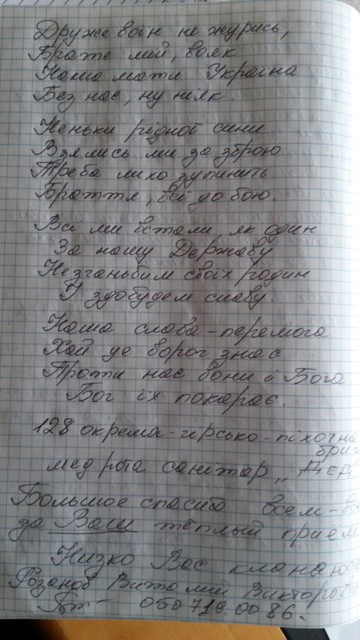 Друже воїн не журись,
Брате мій, вояк
Наша мати Україна
Без нас, ну ніяк.
Неньки рідної сини
Взялись ми за зброю
Треба лихо зупинить
Браття, всі до бою.
Всі ми встали, як один
За нашу Державу
Незганьбим своїх родин
І здобудем славу.
Наша слава - перемога
Хай це ворог знає
Проти нас вони і Бога
Бог їх покарає.
128 окрема-гірсько-піхотна
бри
мед.рота санітар „ДЕД
Большое спасибо всем
за Ваш тёплый прием
Низко Вас
Виталий Викторов